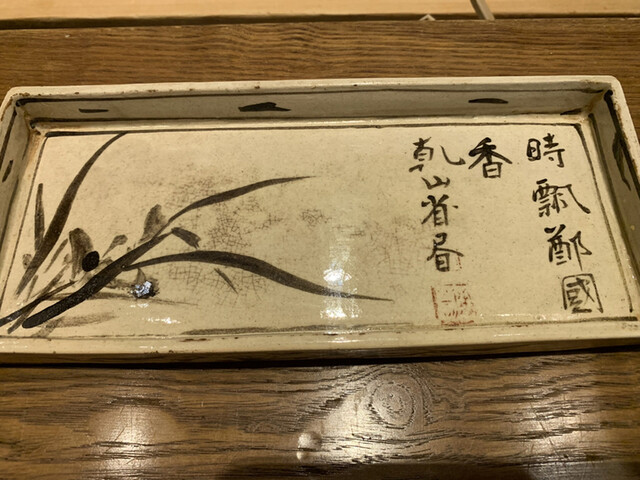 時飄鄭國
香
乾山省書